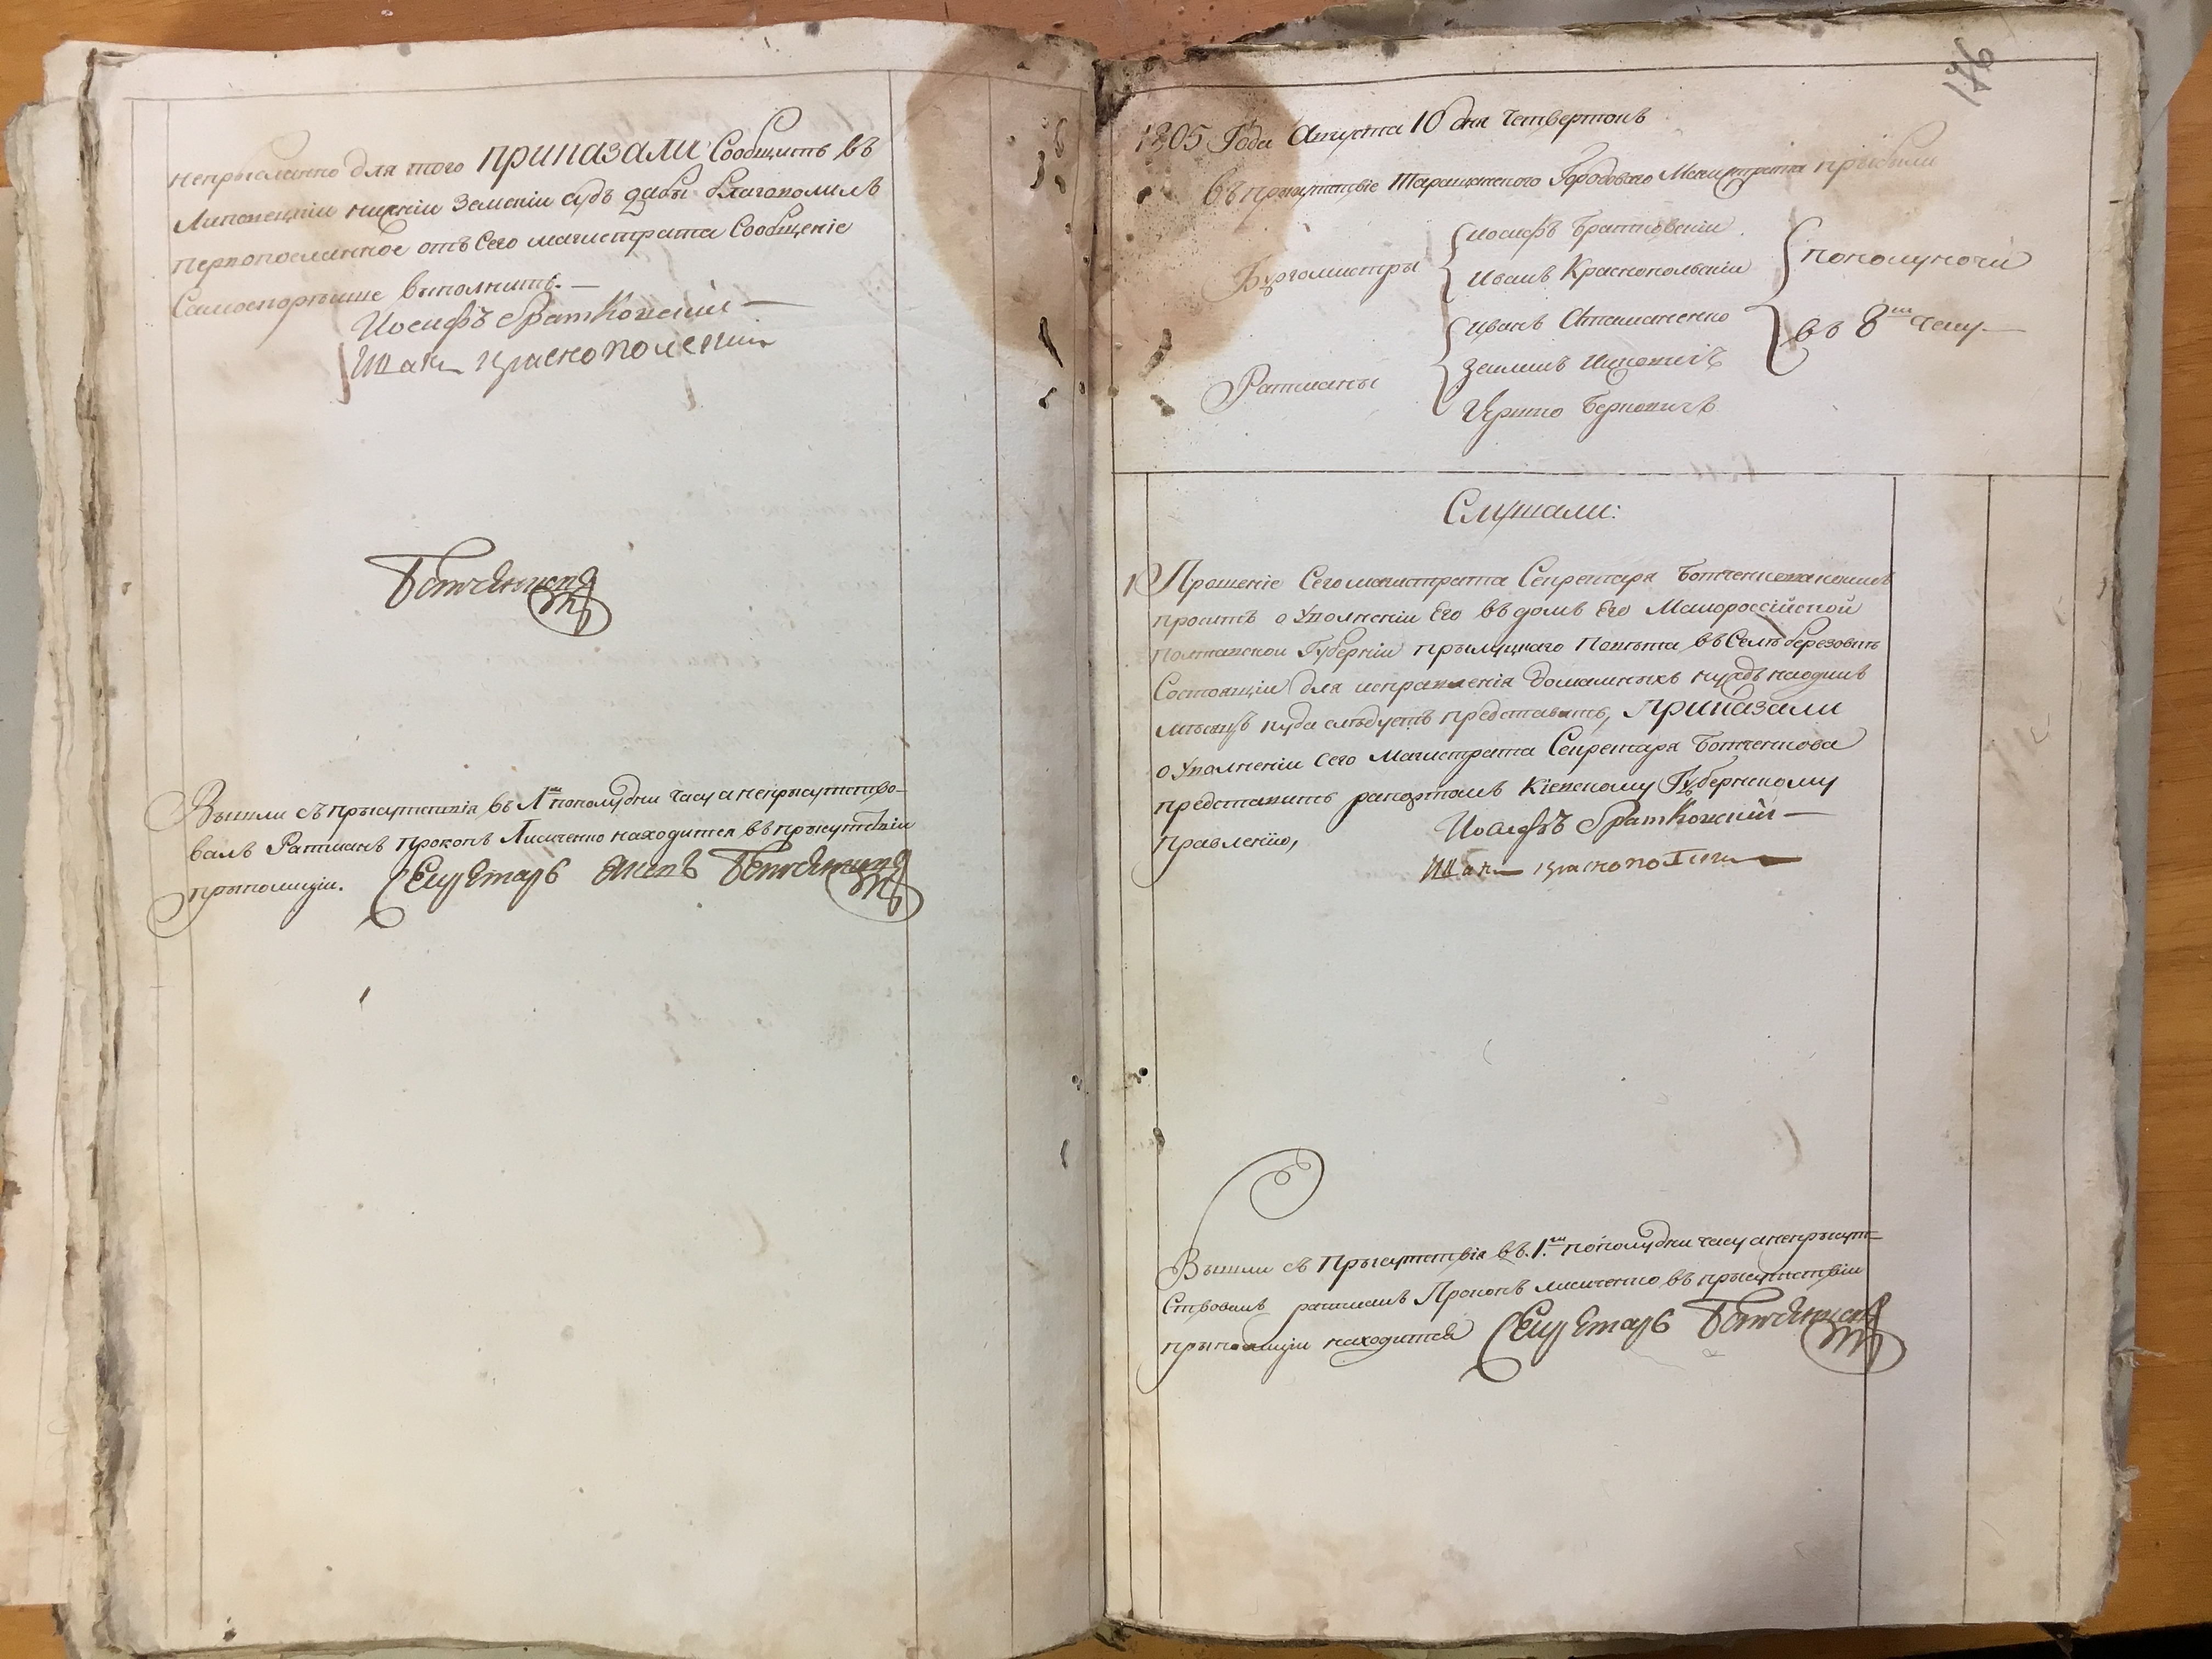 неприсланно для того приказали Сообщить въ
Липовецкіи нижніи Земскіи судъ дабы благоволилъ
первопосланное отъ Сего магистрата Сообщеніе
Самоскорѣише выполнить.
Иосифъ Братковскій
Иван Краснополскии
Вышли съ присутствія въ 1м пополудни часу а неприсутство-
валъ Ратманъ Прокопъ Лисиченко находится въ присутствіи
приполиціи. Секретарь Яковъ
176
1805 Года Августа 10 дня четвертокъ
Въ присутствіе Таращанского Городоваго Магистрата прибыли
Бургомистры
Иосифъ Братковскіи
Иванъ Краснопольскіи
пополуночи
Ратманы
Иванъ Атаманенко
въ 8м часу
Зелманъ Ицковичъ
Ицко Берковичъ
Слушали:
1 Прошеніе Сего магистрата Секретаря
проситъ о Уволненіи Его въ домъ Его Малороссійской
Полтавской Губерніи прилуцкаго Повѣта въ Селѣ березовкѣ
Состоящіи для исправленія домашныхъ нуждъ на одинъ
мѣсяцъ куда слѣдуетъ представить, Приказали
о Уволненіи Сего Магистрата Секретаря Ботченкова
представить рапортомъ Кіевскому Губернскому
Правленію,
Иосифъ Братковскій
Иван Краснополскии
Вышли съ Присутствія въ 1.м пополудни часу а неприсут-
Ствовалъ ратманъ Прокопъ Лисиченко въ присутствіи
приполиціи находится Секретарь